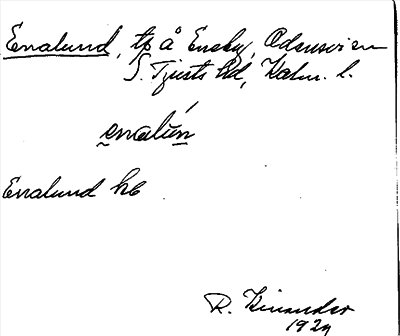 Enalund, tp å Eneby, Odensvi sn
S. Tjusts hd, Kalm. l.
enalún
Enalund hb
R. Kinander
1929